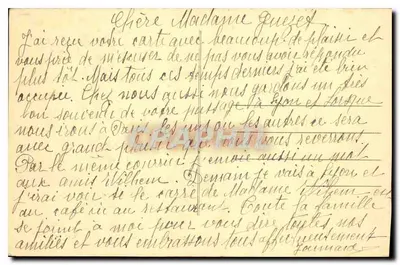 Chère Madame
J'ai reçu votre carte avec beaucoup de plaisir et
vous prie de m'excuser de ne pas vous avoir répondu
plus tôt. Mais tous ces temps derniers j'ai été bien
occupée. Chez nous aussi nous gardons un très
bon souvenir de votre passage à Lyon et lorsque
nous irons à Paris les uns ou les autres ce sera
avec grand plaisir que nous vous reverrons.
Par le même courrier j'envoie aussi un mot
aux amis Demain je vais à Lyon et
j'irai voir si le carré de Madame est
au café ou au restaurant. Toute la famille
se joint à moi pour vous dire toutes nos
amitiés et vous embrassons tous affectueusement